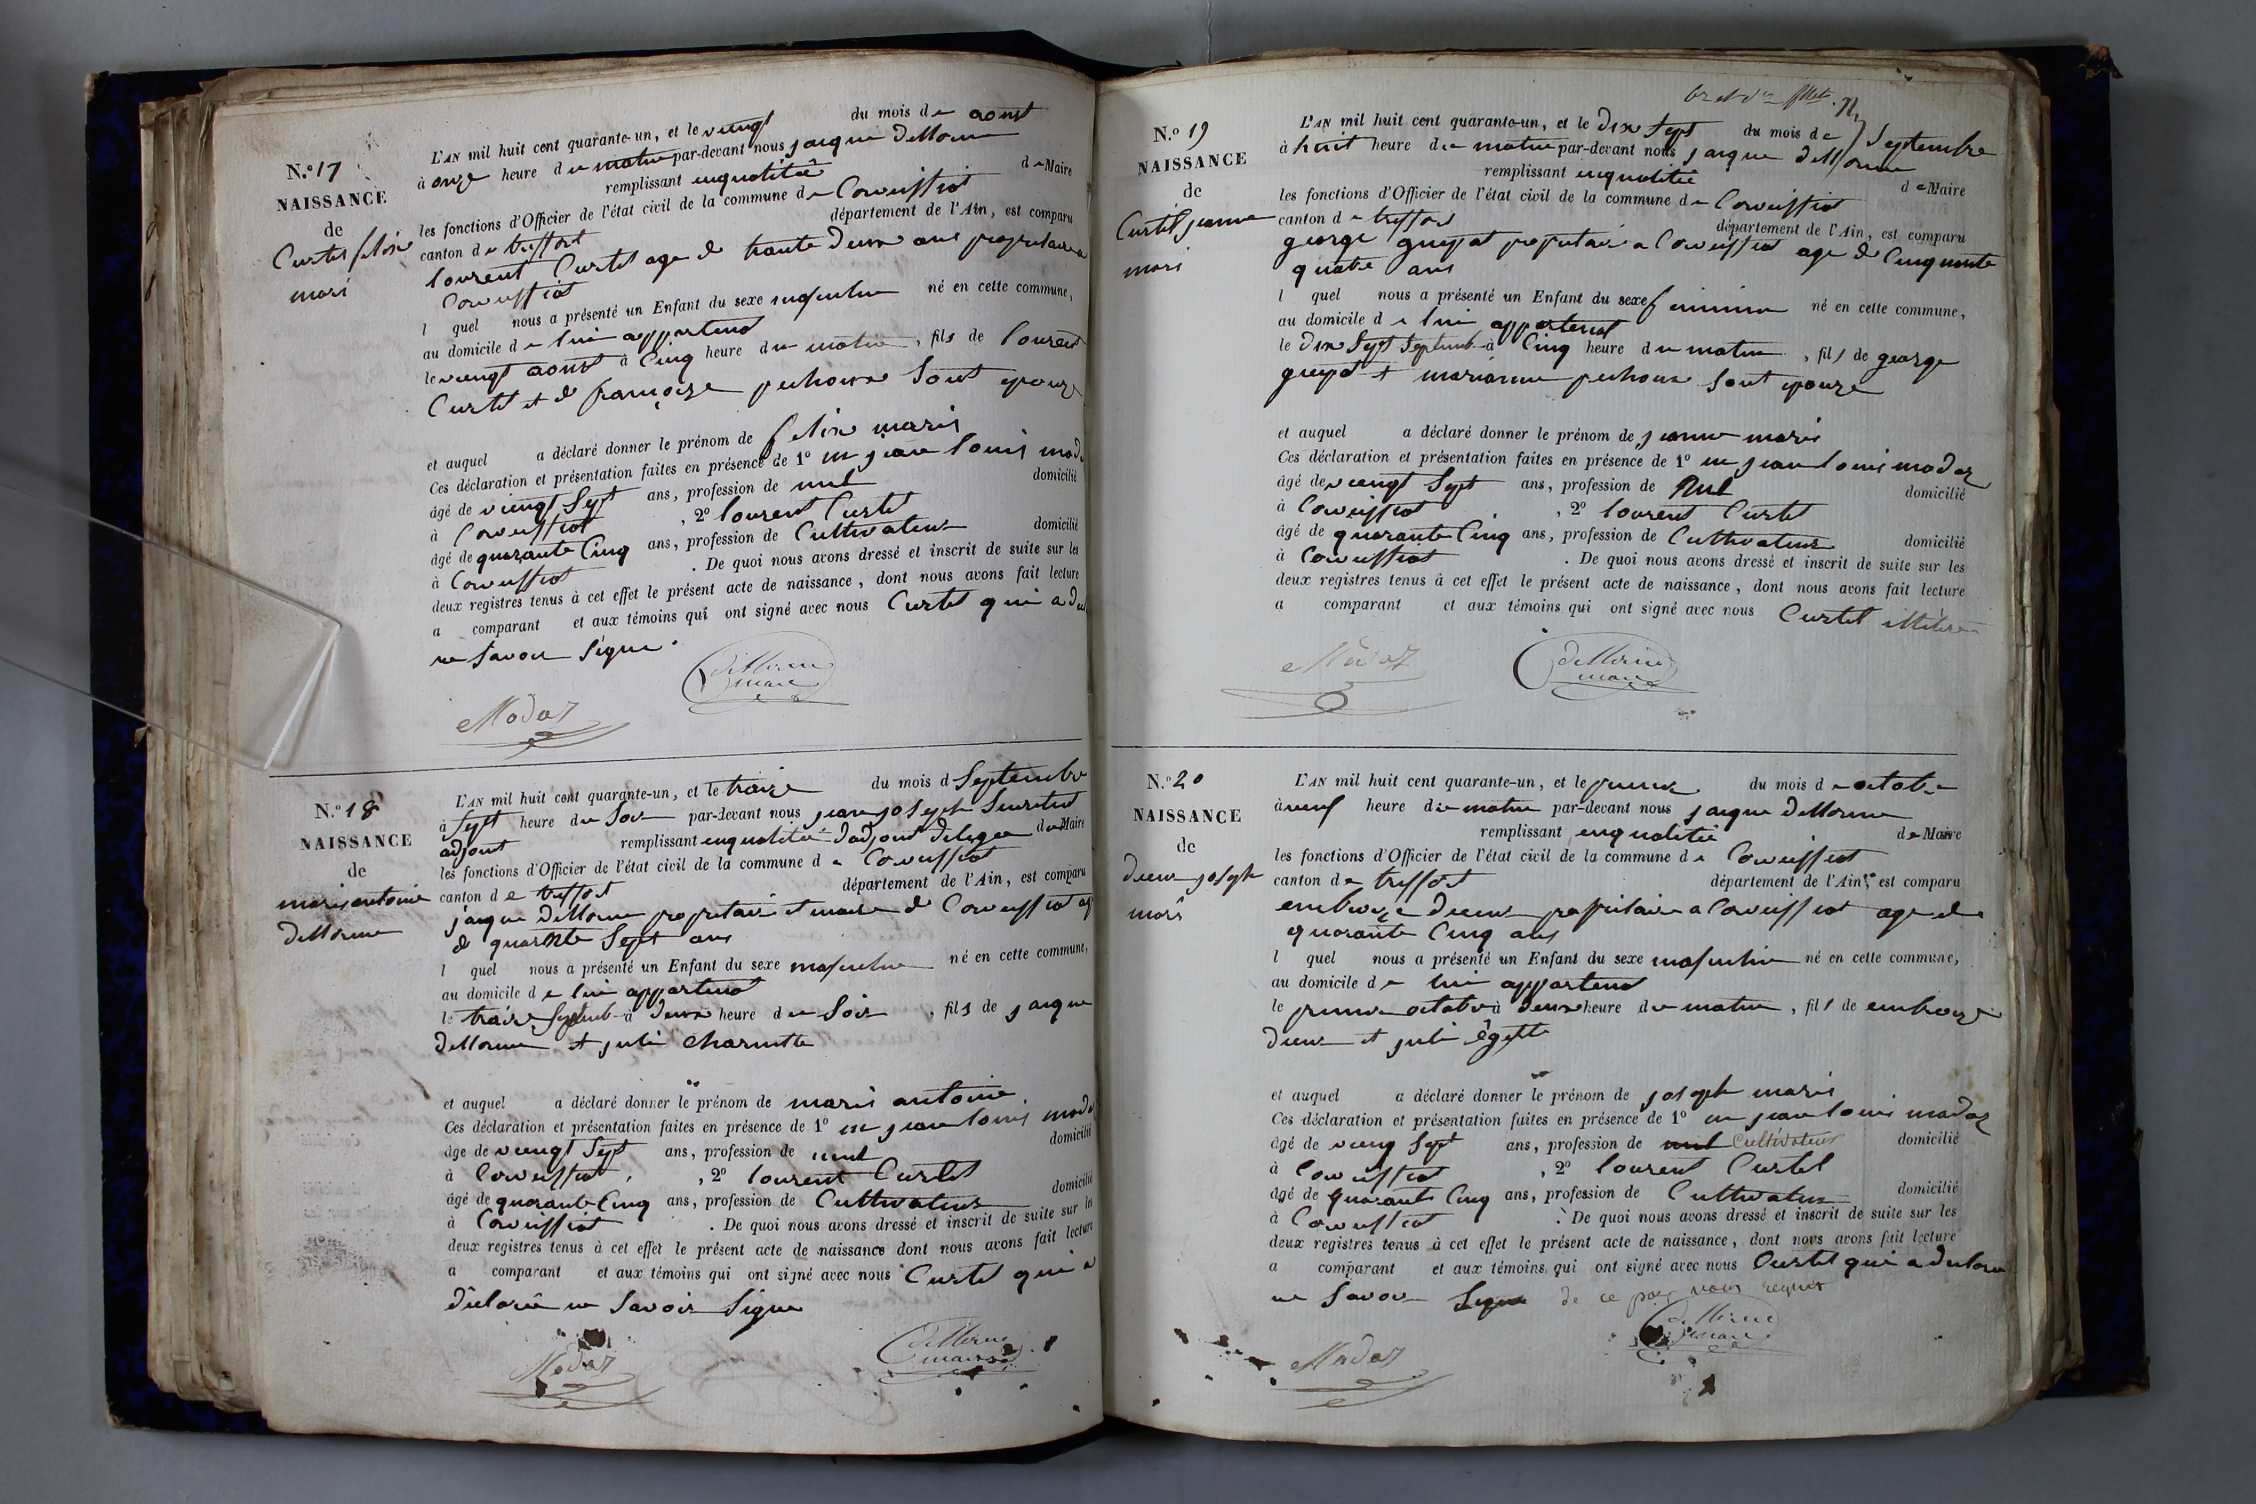 N.º 17
NAISSANCE
de
Curtil felix
mari
L'AN mil huit cent quarante-un, et le viengt du mois de aoust
à onze heure du matin par-devant nous jacque dellorme
remplissant enqualitée de Maire
les fonctions d'Officier de l'état civil de la commune de Corveissiat
canton de treffort département de l'Ain, est comparu
lourent Curtil age de trante deux ans propritaire a
Corveissiat
l quel nous a présenté un Enfant du sexe masculin né en cette commune,
au domicile de a lui appartend
le viengt aoust à Cinq heure du matin, fils de lourent
Curtil et de françoise pechoux sont epouze
et auquel a déclaré donner le prénom de felix marie
Ces déclaration et présentation faites en présence de 1º m jean louis mada
âgé de viengt Sept ans, profession de nul domicilié
à Corveissiat, 2º lourent Curtil
âgé de quarante Cinq ans, profession de Cultivateur domicilié
à Corveissiat. De quoi nous avons dressé et inscrit de suite sur les
deux registres tenus à cet effet le présent acte de naissance, dont nous avons fait lecture
a comparant et aux témoins qui ont signé avec nous Curtil qui a de
ne Savoir Signe.
dellorme
maire
Madaz
N.º 18
NAISSANCE
de
marie antoine
dellorme
L'AN mil huit cent quarante-un, et le traize du mois d Septembre
à Sept heure du Soir par-devant nous jean joseph
adjoint remplissant enqualitée dadjoint delegee du Maire
les fonctions d'Officier de l'état civil de la commune de Corveissiat
canton de treffort département de l'Ain, est comparu
jacque dellorme propritaire et maire de Corveissiat ag
de quarante Sept ans
l quel nous a présenté un Enfant du sexe masculin né en cette commune,
au domicile de a lui appartend
le traize Septemb à deux heure du Soir, fils de jacque
dellorme et juli charnette
et auquel a déclaré donner le prénom de marie antoine
Ces déclaration et présentation faites en présence de 1º m jean louis mada
âge de viengt Sept ans, profession de nul domicilié
à Corveissiat, 2º lourent Curtil
âgé de quarante Cinq ans, profession de Cultivateur domicilié
à Corveissiat. De quoi nous avons dressé et inscrit de suite sur les
deux registres tenus à cet effet le présent acte de naissance dont nous avons fait lecture
a comparant et aux témoins qui ont signé avec nous Curtil qui a
déclaré ne Savoir Signe
Madaz
dellorme
maire
N.º 19
NAISSANCE
de
Curtil jeanne
mari
L'AN mil huit cent quarante-un, et le dix Sept du mois de Septembre
à huit heure du matin par-devant nous jacque dellorme
remplissant enqualitée de Maire
les fonctions d'Officier de l'état civil de la commune de Corveissiat
canton de treffort département de l'Ain, est comparu
george guepat propritaire a Corveissiat age de Cinquante
quatre ans
l quel nous a présenté un Enfant du sexe feminin né en cette commune,
au domicile de a lui appartend
le dix Sept Septemb à Cinq heure du matin, fils de george
guepat et marianne pechoux Sont epouze
et auquel a déclaré donner le prénom de jeanne marie
Ces déclaration et présentation faites en présence de 1º m jean louis madaz
âgé de viengt Sept ans, profession de Nul domicilié
à Corveissiat, 2º lourent Curtil
âgé de quarante Cinq ans, profession de Cultivateur domicilié
à Corveissiat. De quoi nous avons dressé et inscrit de suite sur les
deux registres tenus à cet effet le présent acte de naissance, dont nous avons fait lecture
a comparant et aux témoins qui ont signé avec nous Curtil
Madaz
dellorme
maire
N.º 20
NAISSANCE
de
joseph
mari
L'AN mil huit cent quarante-un, et le premie du mois de octobre
à neuf heure du matin par-devant nous jacque dellorme
remplissant enqualitée de Maire
les fonctions d'Officier de l'état civil de la commune de Corveissiat
canton de treffort département de l'Ain, est comparu
embroize propritaire a Corveissiat age de
quarante Cinq ans
l quel nous a présenté un Enfant du sexe masculin né en cette commune,
au domicile de a lui appartend
le premie octobre à deux heure du matin, fils de embroize
et juli
et auquel a déclaré donner le prénom de joseph marie
Ces déclaration et présentation faites en présence de 1º m jean louis madaz
âgé de vieng Sept ans, profession de nul Cultivateur domicilié
à Corveissiat, 2º lourent Curtil
âgé de quarante Cinq ans, profession de Cultivateur domicilié
à Corveissiat. De quoi nous avons dressé et inscrit de suite sur les
deux registres tenus à cet effet le présent acte de naissance, dont nous avons fait lecture
a comparant et aux témoins qui ont signé avec nous Curtil qui a declare
ne Savoir Signe de ce par nous requis
dellorme
maire
Madaz